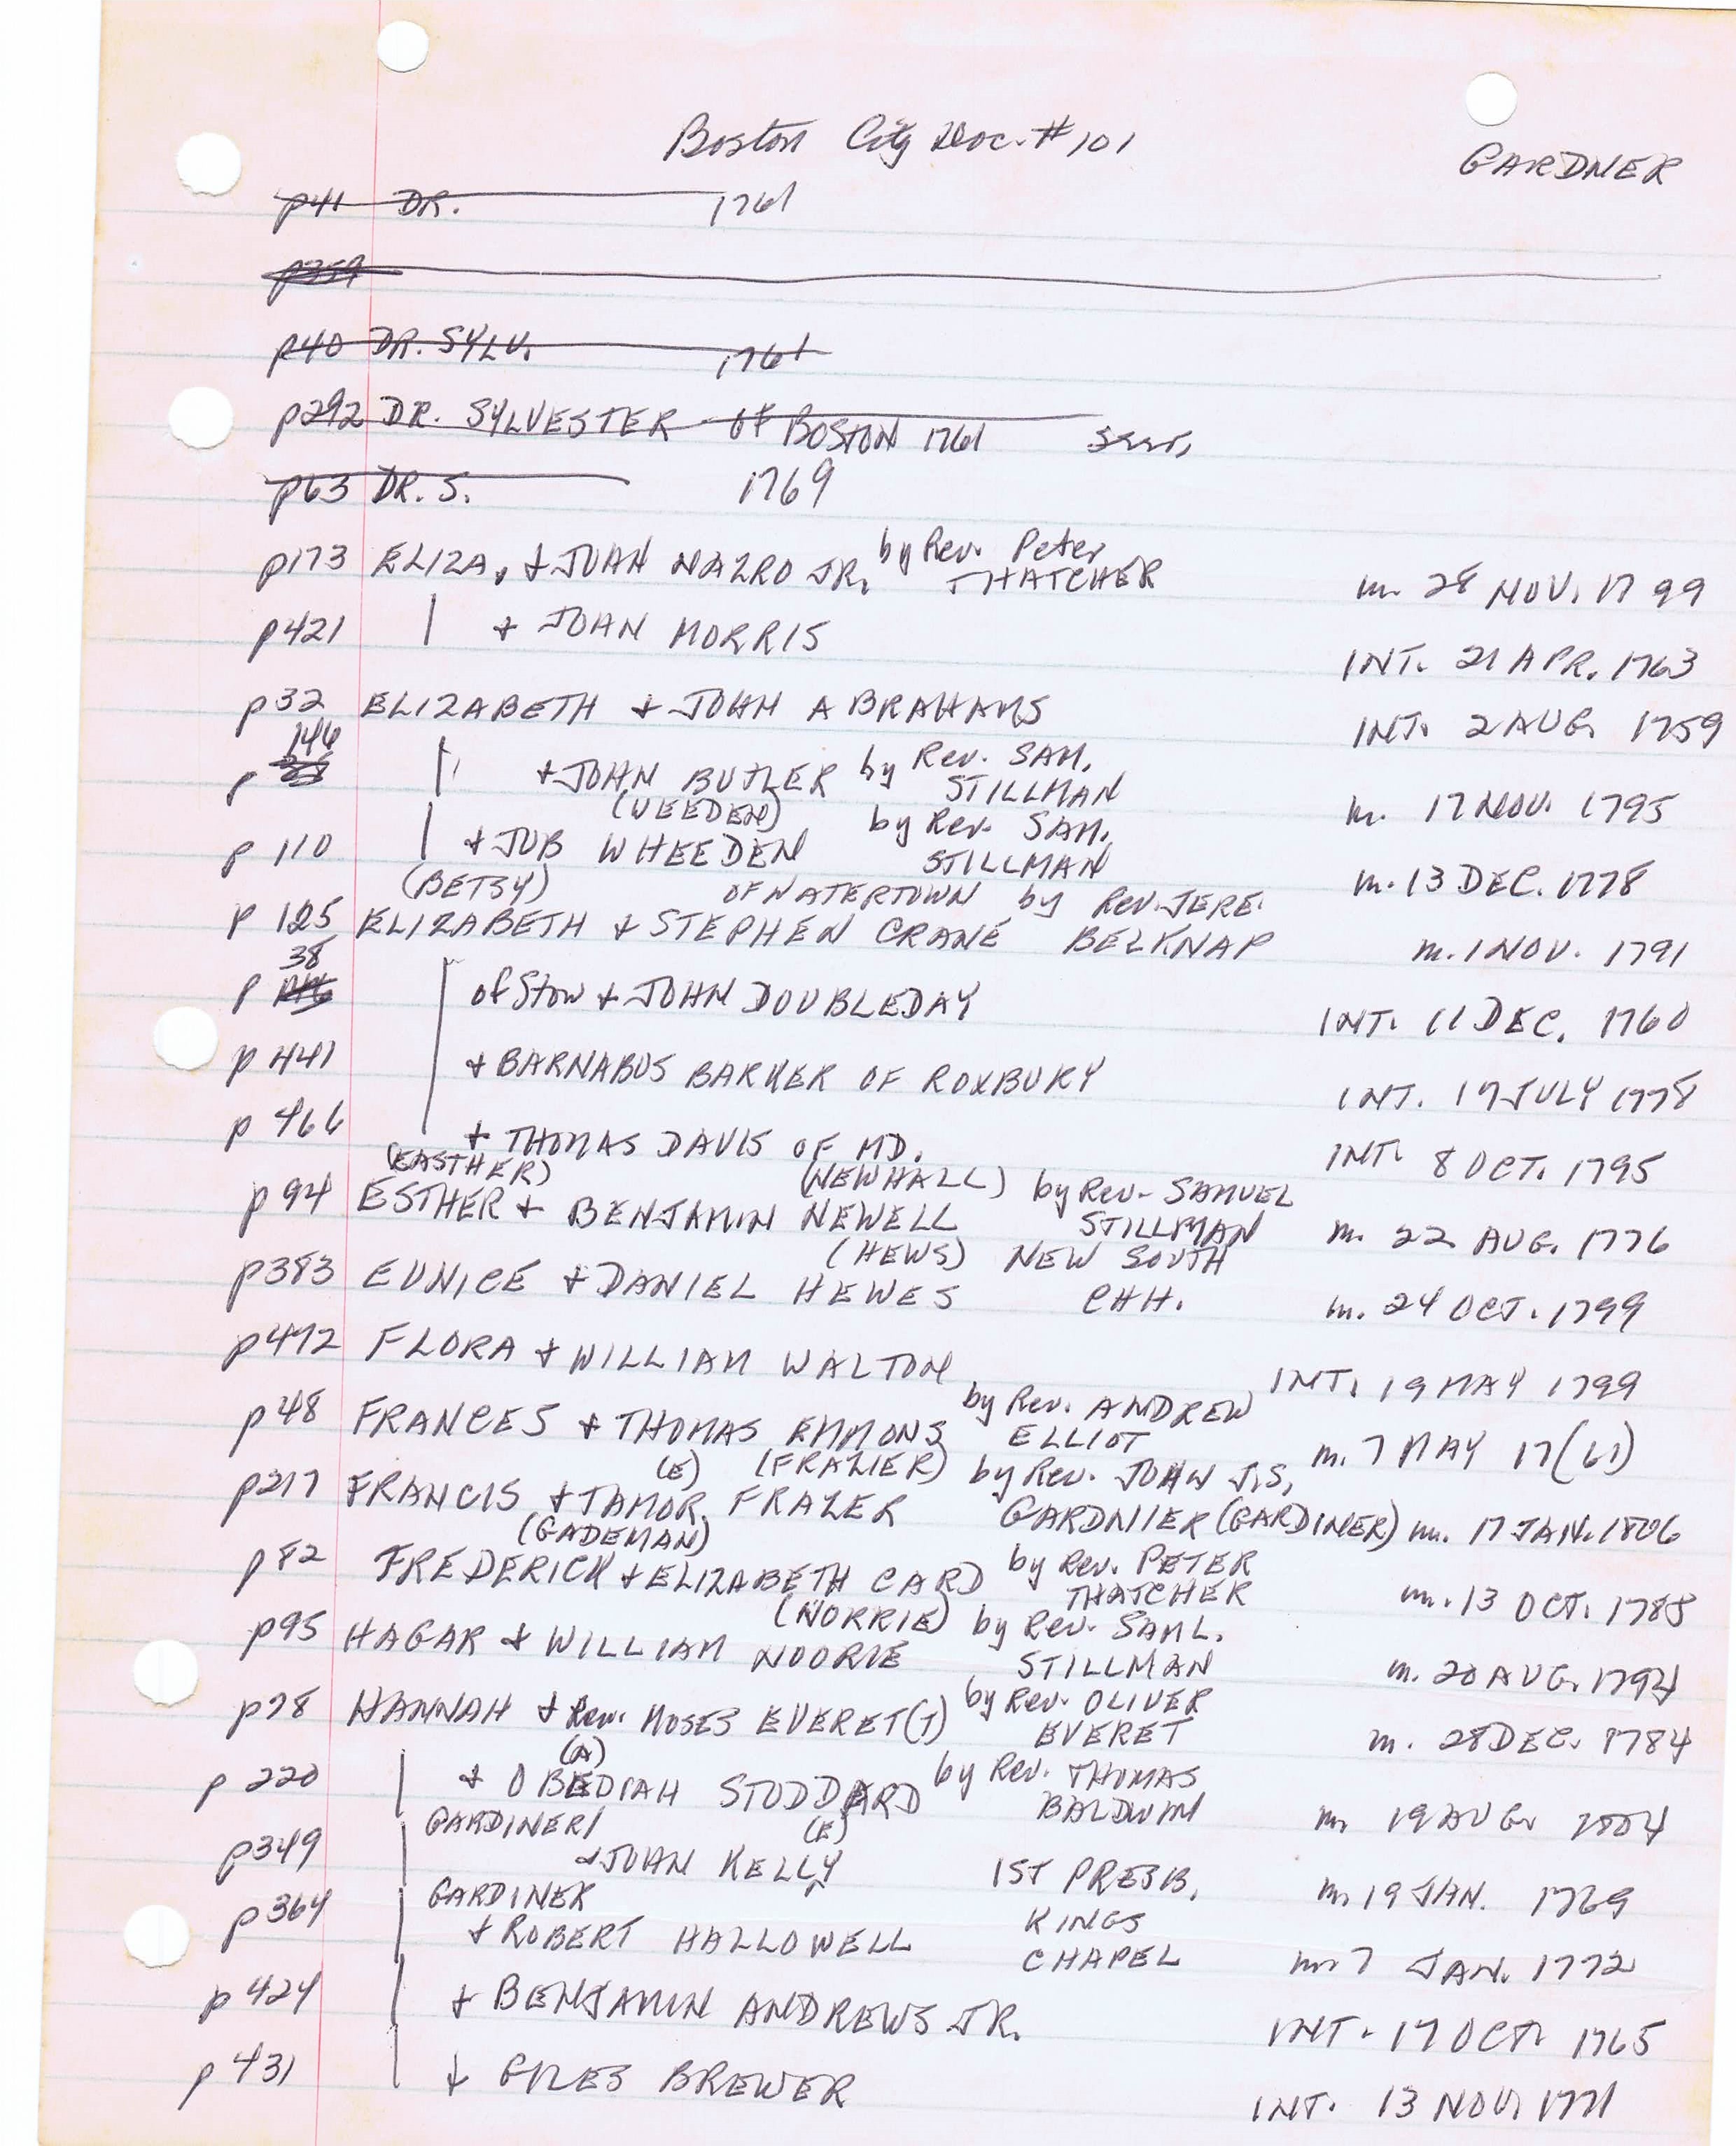 Boston City Doc. #101
GARDNER
p41 DR. 1761
p359
p40 DR. SYLV. 1761
p292 DR. SYLVESTER of BOSTON 1761
p63 DR. S. 1769
by Rev. Peter
p173 ELIZA. & JOHN NAZRO JR. THATCHER m. 28 NOV. 1799
p421 | & JOHN MORRIS INT. 21 APR. 1763
p32 ELIZABETH & JOHN ABRAHAMS INT. 2 AUG. 1759
146 by Rev. SAM.
p | & JOHN BUTLER STILLMAN m. 17 NOV. 1795
(WEEDEN) by Rev. SAM.
p 110 | & JOB WHEEDEN STILLMAN m. 13 DEC. 1778
(BETSY) OF WATERTOWN by Rev. JERE.
p 125 ELIZABETH & STEPHEN CRANE BELKNAP m. 1 NOV. 1791
38
p of Stow & JOHN DOUBLEDAY INT. 11 DEC. 1760
p 441 & BARNABUS BARKER OF ROXBURY INT. 17 JULY 1778
p 466 & THOMAS DAVIS OF MD. INT. 8 OCT. 1795
(EASTHER) (NEWHALL) by Rev. SAMUEL
p 94 ESTHER & BENJAMIN NEWELL STILLMAN m. 22 AUG. 1776
(HEWS) NEW SOUTH
p383 EUNICE & DANIEL HEWES CHH. m. 24 OCT. 1799
p472 FLORA & WILLIAM WALTON INT. 19 MAY 1799
by Rev. ANDREW
p48 FRANCES & THOMAS EMMONS ELLIOT m. 7 MAY 17(61)
(E) (FRAZIER) by Rev. JOHN J.S.
p217 FRANCIS & TAMOR FRAZER GARDNIER (GARDINER) m. 17 JAN. 1806
(GADEMAN) by Rev. PETER
p82 FREDERICK & ELIZABETH CARD THATCHER m. 13 OCT. 1788
(NORRIE) by Rev. SAML.
p95 HAGAR & WILLIAM NOORIE STILLMAN m. 20 AUG. 1794
by Rev. OLIVER
p78 HANNAH & Rev. MOSES EVERET(T) EVERET m. 28 DEC. 1784
(A) by Rev. THOMAS
p 220 | & OBEDIAH STODDARD BALDWIN m. 19 AUG. 1804
GARDINER/ (E)
p349 | & JOHN KELLY 1ST PRESB. m. 19 JAN. 1769
GARDINER KINGS
p364 | & ROBERT HALLOWELL CHAPEL m. 7 JAN. 1772
p 424 | & BENJAMIN ANDREWS JR. INT. 17 OCT. 1765
p 431 | & GILES BREWER INT. 13 NOV. 1771